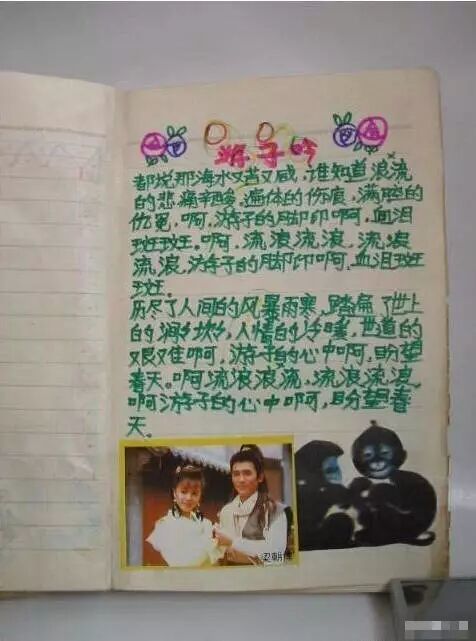 游子吟
都说那海水又苦又咸，谁知道浪流
的悲痛辛酸，遍体的伤痕，满腔的
仇冤，啊，游子的脚印啊，血泪
斑斑。啊，流浪流浪，流浪
流浪，游子的脚印啊，血泪斑
斑。
历尽了人间的风暴雨寒，踏遍了世上
的沟沟坎坎，人情的冷暖，世道的
艰难啊，游子的心中啊，盼望
春天。啊流浪浪流，流浪流浪
啊游子的心中啊，盼望春
天。
梁朝